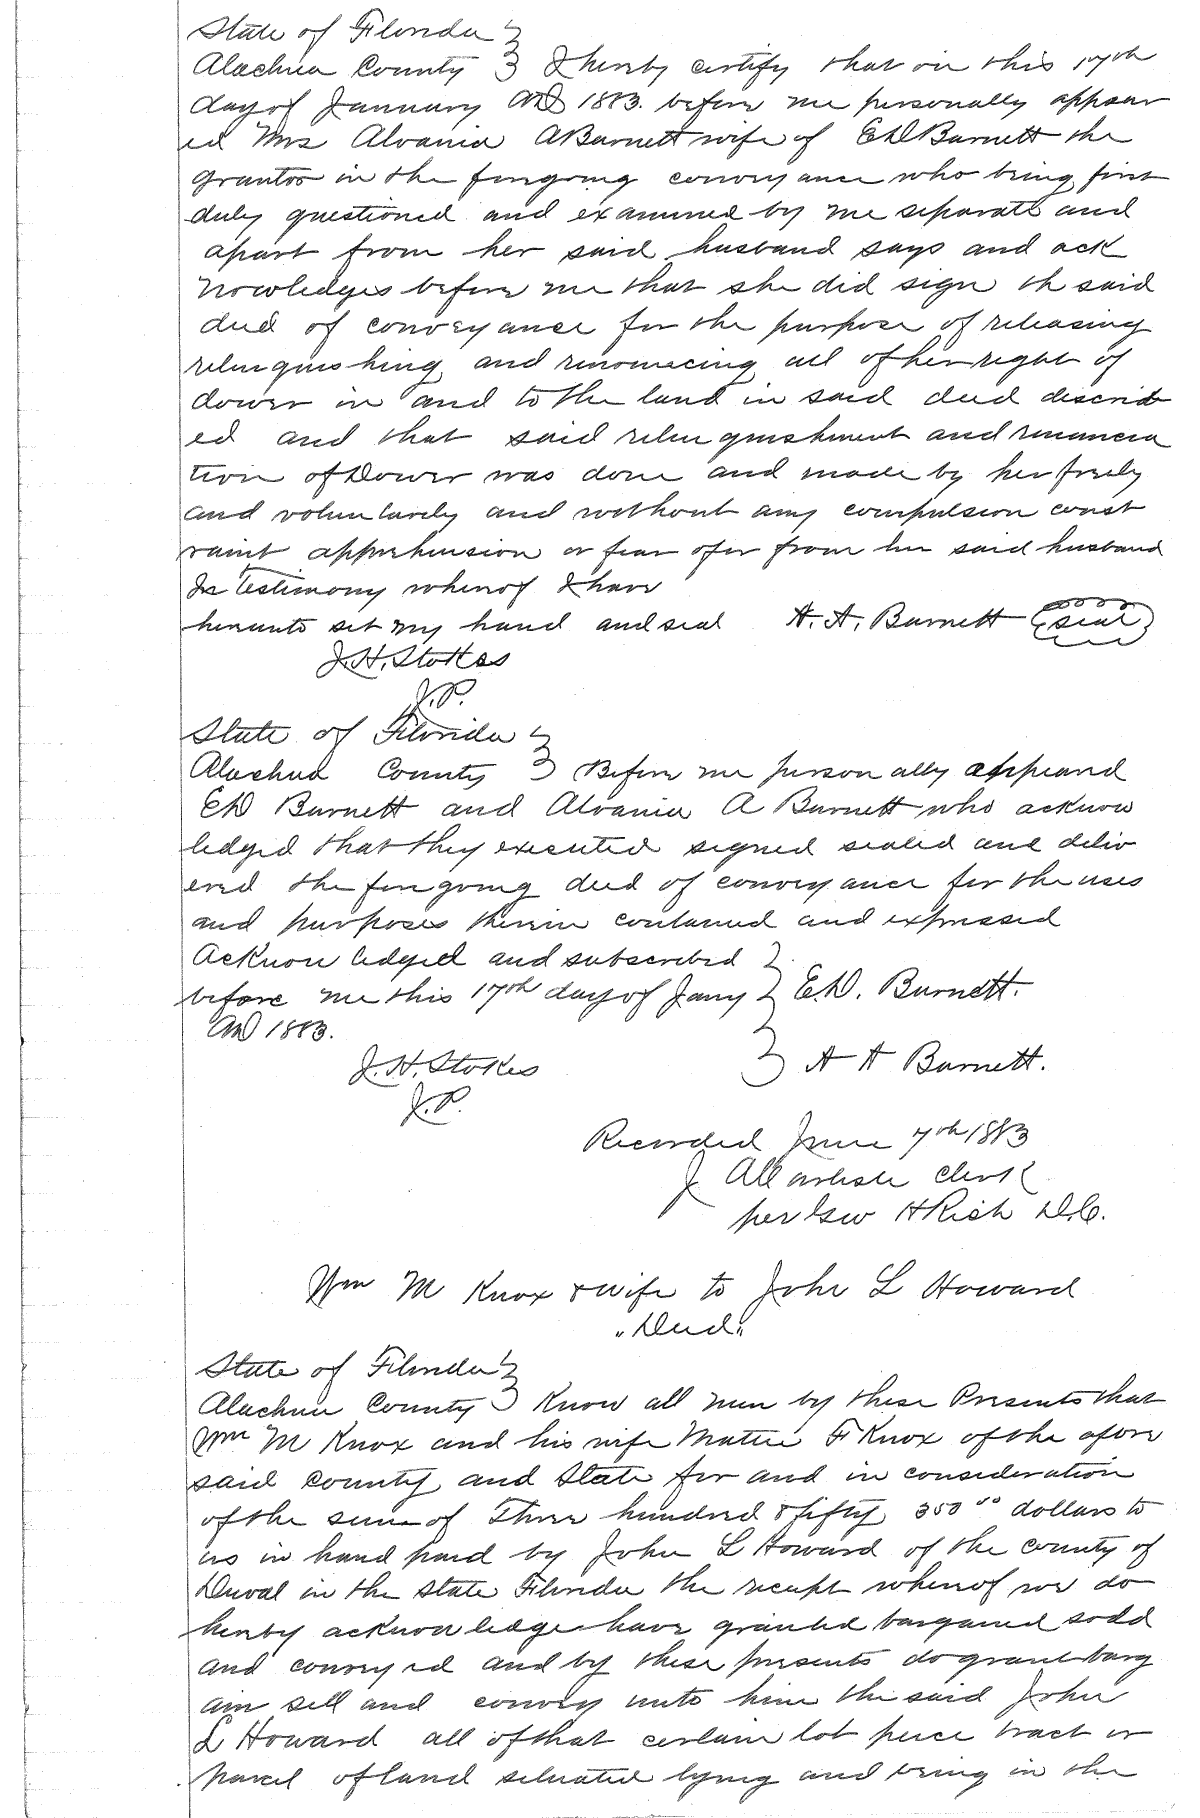 State of Florida }
Alachua County } I hereby certify that on this 17th
day of January AD 1883. before me personally appear
ed Mrs Alvania A Barnett wife of E D Barnett the
grantor in the foregoing conveyance who being first
duly questioned and examined by me separate and
apart from her said husband says and ack
nowledges before me that she did sign th said
deed of conveyance for the purpose of releasing
relinquishing and renouncing all of her right of
dower in and to the land in said deed describ
ed and that said relinquishment and renuncia
tion of Dower was done and made by her freely
and voluntarily and without any compulsion const
raint apprehension or fear of or from her said husband
In Testimony whereof I have
hereunto set my hand and seal A. A. Barnett (seal)
J. H. Stokes
J. P.
State of Florida }
Alachua County } Before me personally appeared
E D Barnett and Alvania A Barnett who acknow
ledged that they executed signed sealed and deliv
ered the foregoing deed of conveyance for the uses
and purposes therein contained and expressed
Acknowledged and subscribed }
before me this 17th day of Jany } E. D. Barnett.
AD 1883.
J. H. Stokes } A A Barnett.
J. P.
Recorded June 7th 1883
J A Carlisle Clerk
per Geo H Rich D. C.
Wm M Knox & wife to John L Howard
"Deed"
State of Florida }
Alachua County } Know all men by these Presents that
Wm M Knox and his wife Mattie F Knox of the afore
said county and State for and in consideration
of the sum of Three hundred & fifty 350 00 dollars to
us in hand paid by John L Howard of the county of
Duval in the state Florida the receipt whereof we do
hereby acknowledge have granted bargained sold
and conveyed and by these presents do grant barg
ain sell and convey unto him the said John
L Howard all of that certain lot peice tract or
parcel of land situated lying and being in the